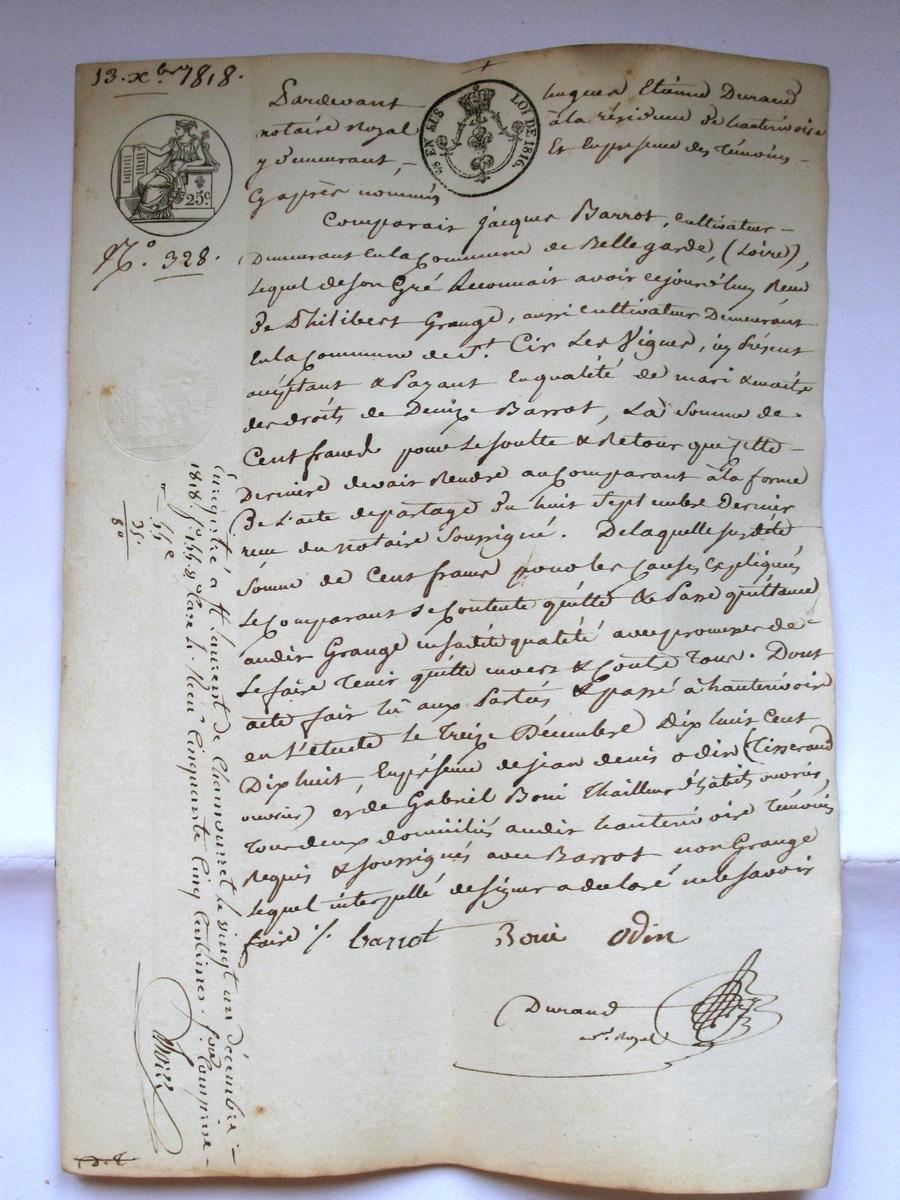 13. xbre 1818.
25c
N.o 328.
25 EN SUS
LOI DE 1816
Pardevant hugues Etienne Durand
notaire Royal à la résidence de hauterivoire
y demeurant – Et En présence des témoins –
Cy après nommés
Comparait Jacques Barrot, cultivateur –
Demeurant En la Commune de Bellegarde, (Loire),
Lequel de son Gré Reconnait avoir cejourd'huy Reçu
De Philibert Grange, aussi cultivateur Demeurant
En la Commune de St. Cir Les Vignes, icy présent
acceptant & Payant En qualité de mari & maitre
des droits de Denize Barrot, La somme de
Cent francs pour Le soulte & Retour que cette –
Derniere devait Rendre au Comparant à la forme
De l'acte de partage Du huit Septembre Dernier
reçu du notaire Soussigné. De laquelle susdite
Somme de Cent francs pour les causes Expliquées
Le Comparant Se Contente quitte & Passe quittance
audit Grange en sadite qualité avec promesse de –
Le faire Tenir quitte envers & Contre Tous. Dont
acte fait lu aux Parties & passé à hauterivoire
en L'étude le Treize Décembre Dix huit Cent
Dix huit, En présence de jean denis odin (Tisserand
ouvrier) et de Gabriel Boni Thailleur d'habits ouvrier,
Tous deux domiciliés audit hauterivoire Témoins
Requis & soussignés avec Barrot non Grange
Lequel interpellé de signer a declaré ne le savoir
faire ./.
barrot Boni Odin
Durand
nre. Royal
Enregistré à St. Laurent de Chamousset le vingt un décembre –
1818. fo 155 Vo Case 4. Reçu Cinquante Cinq Centimes. Son Compris –
55c
25.
80